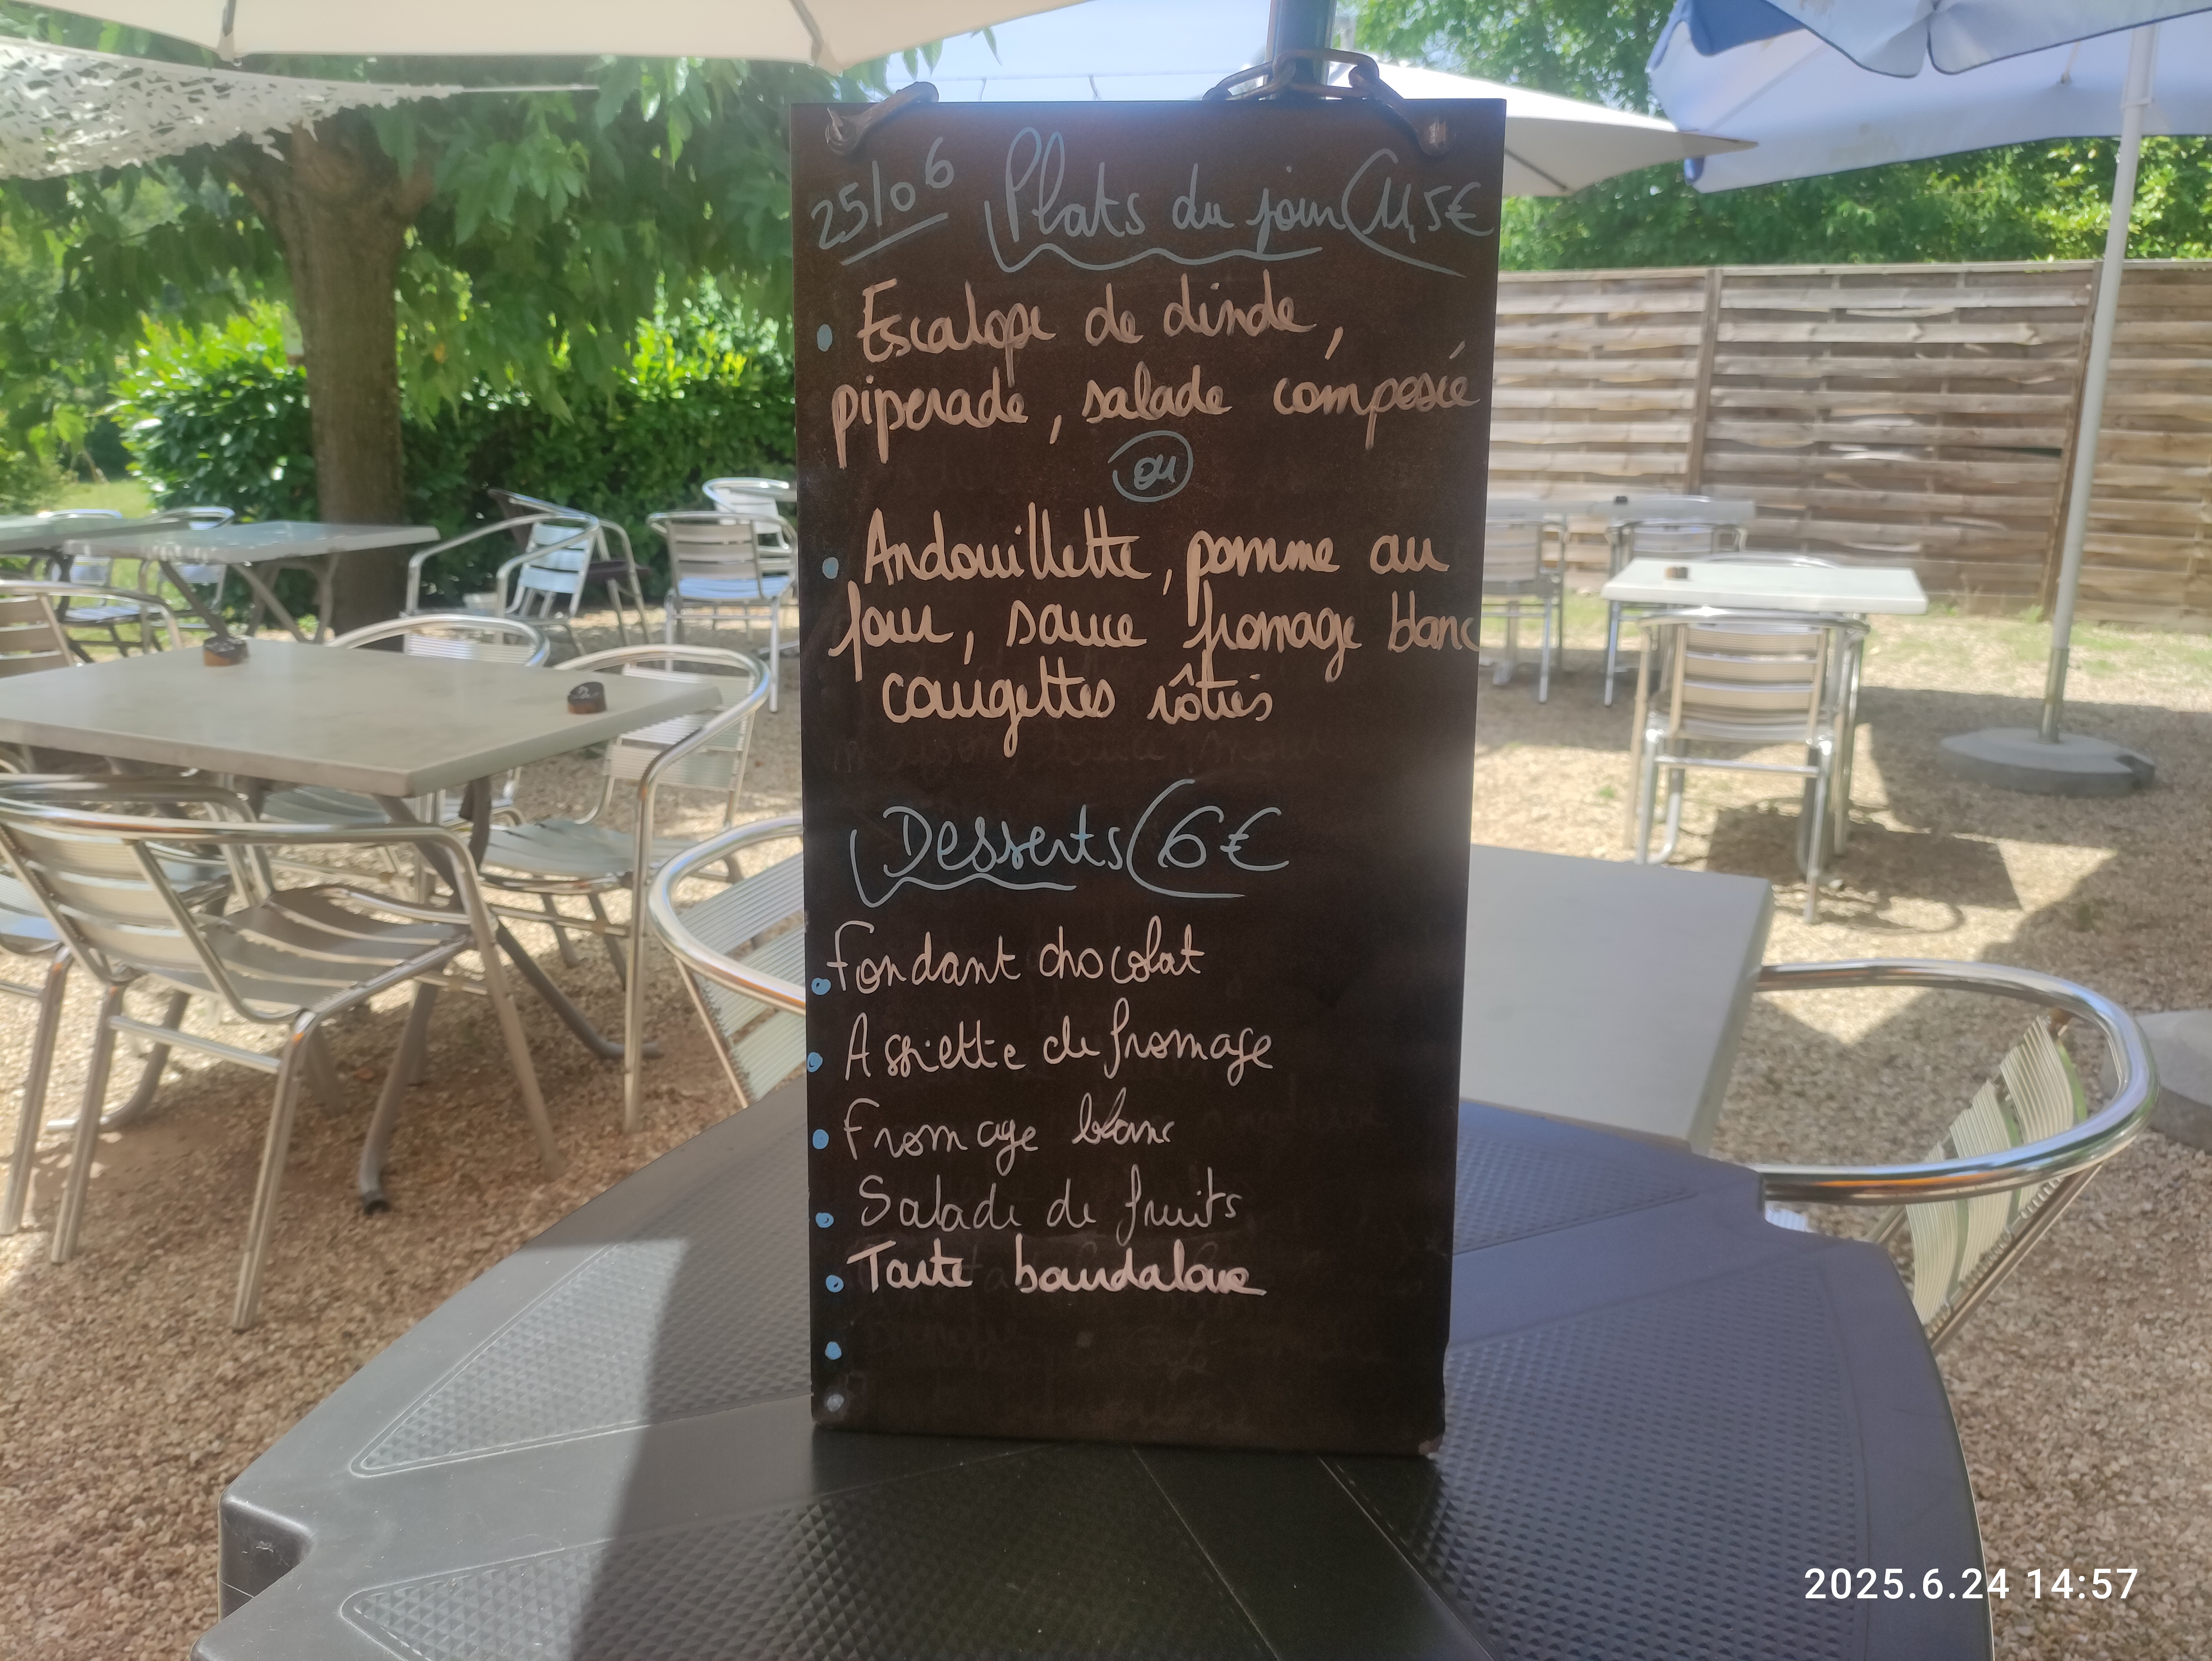 25/06 Plats du jour 11,5€
• Escalope de dinde,
piperade, salade composée
ou
• Andouillette, pomme au
four, sauce fromage blanc
courgettes rôties
Desserts 6€
• Fondant chocolat
• Assiette de fromage
• Fromage blanc
• Salade de fruits
• Tarte bourdaloue
2025.6.24 14:57